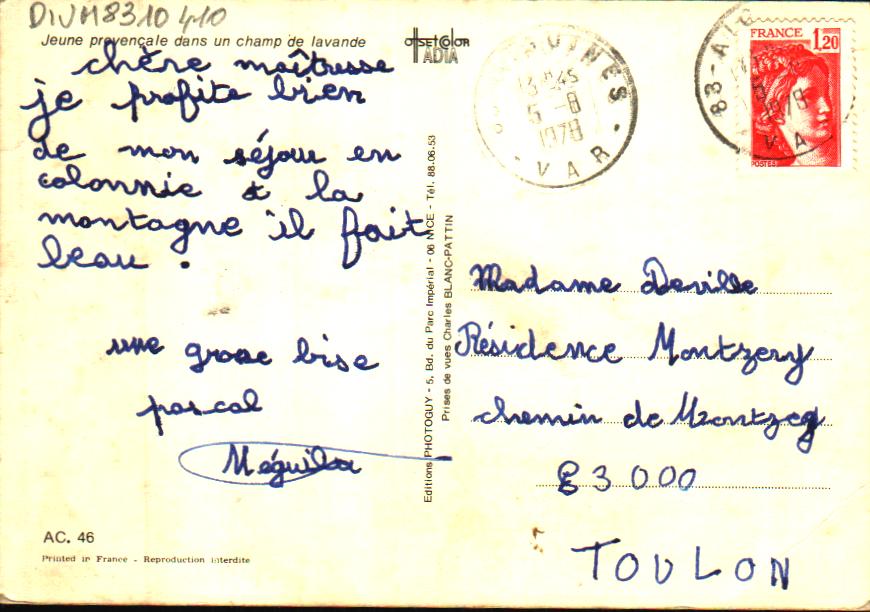 DIVM8310410
Jeune provençale dans un champ de lavande
OFFSET COLOR
ADIA
chère maîtresse
je profite bien
de mon séjou en
colonnie et la
montagne il fait
beau .
une grosse bise
pascal
AC. 46
Printed in France - Reproduction interdite
Editions PHOTOGUY - 5, Bd. du Parc Impérial - 06 NICE - Tél. 88.06.53
Prises de vues Charles BLANC-PATTIN
5 -8
1978
VAR
83-
1978
VA
FRANCE 1,20
POSTES
Madame Deville
Résidence Montzery
chemin de Montzeg
83000
TOULON